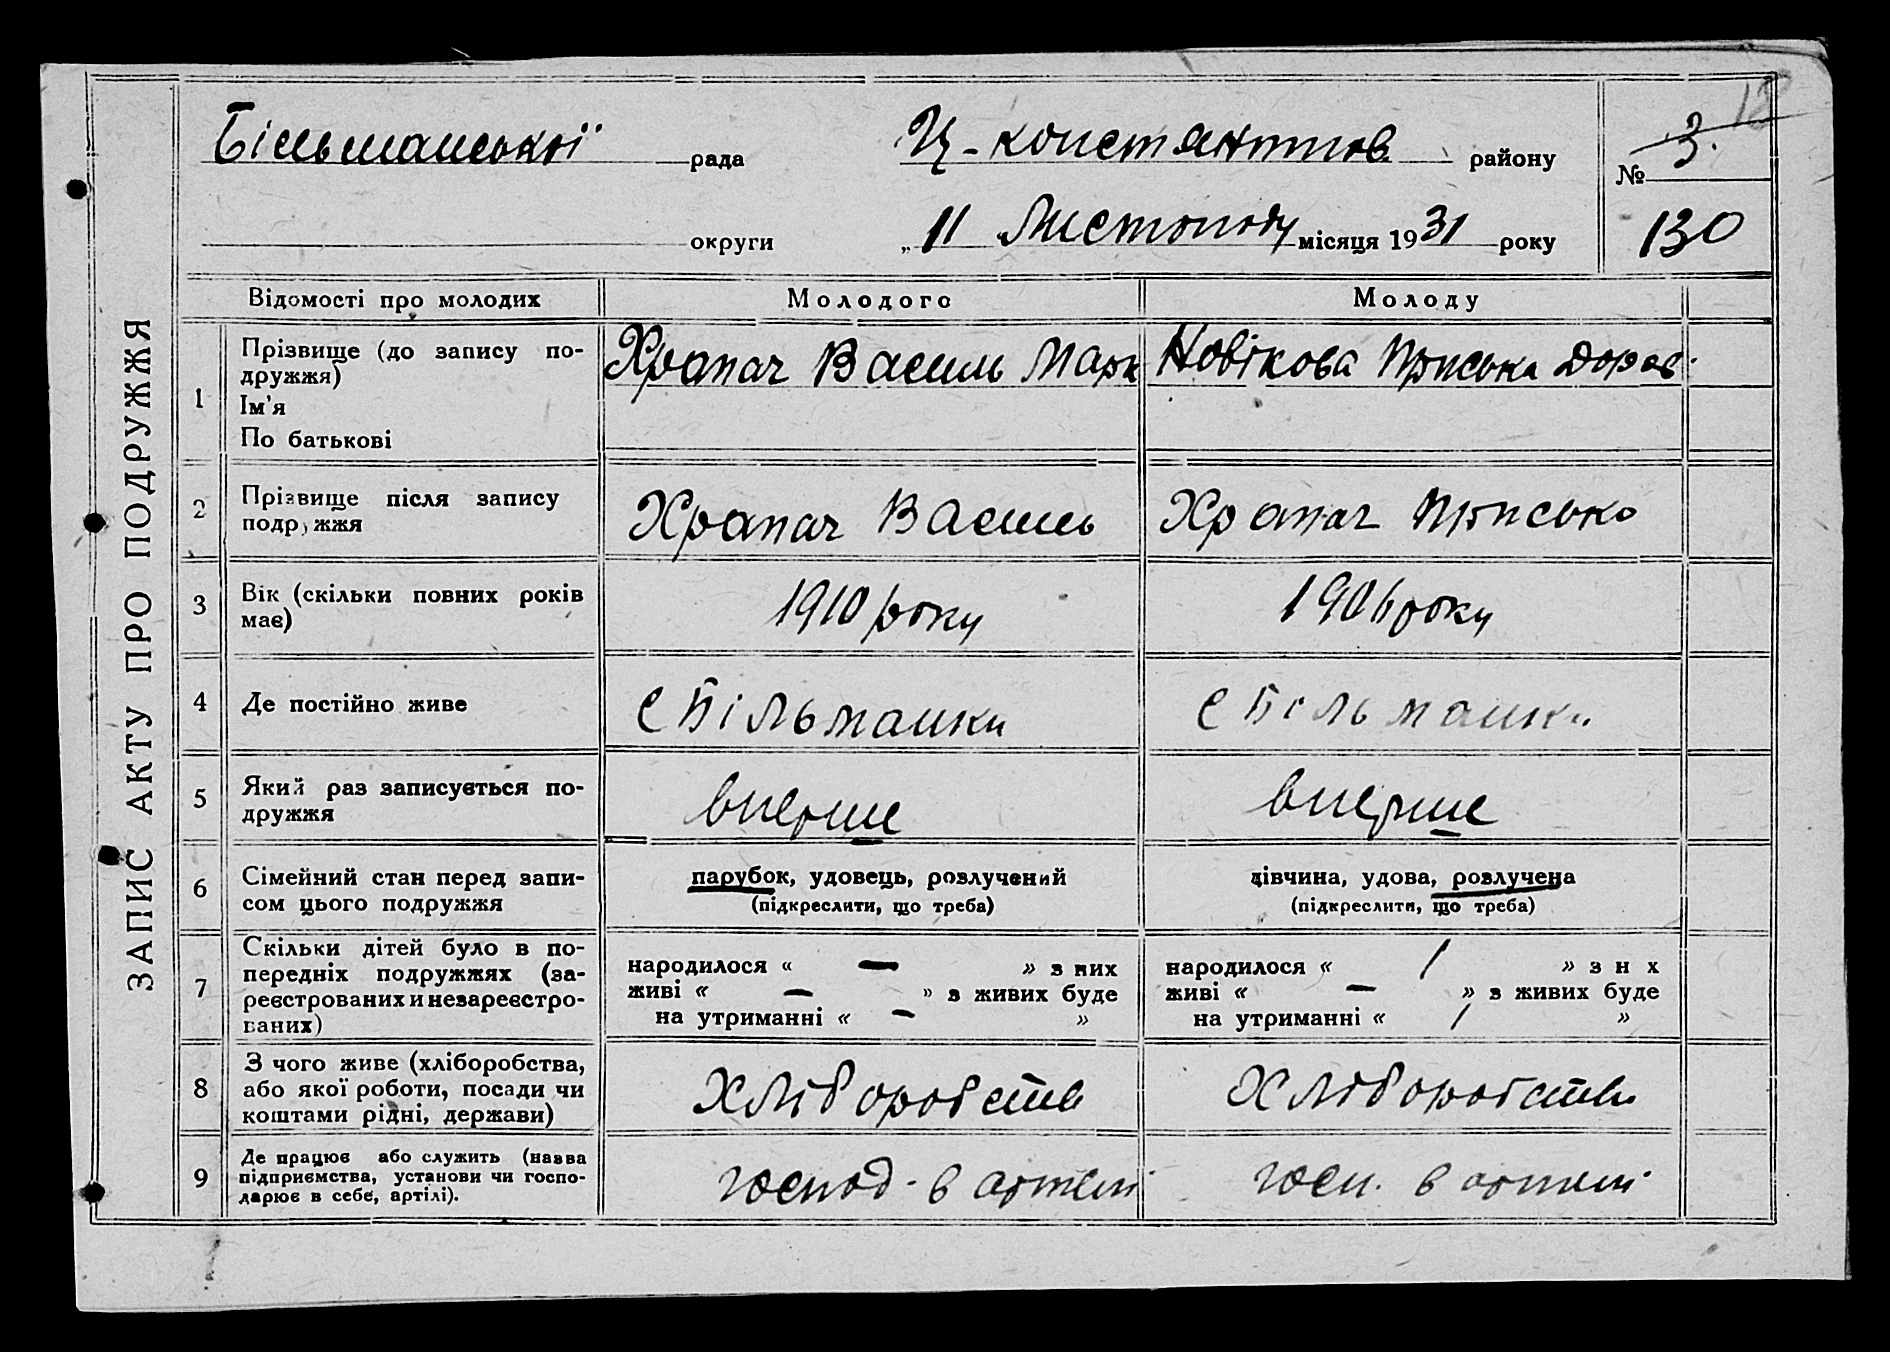 ЗАПИС АКТУ ПРО ПОДРУЖЖЯ
Більманської рада Ц-константинов району № 3.
округи „ 11 Листопаду місяця 1931 року 130
Відомості про молодих Молодого Молоду
1 Прізвище (до запису по-
дружжя)
Ім'я
По батькові
Храпач Василь Марк Новікова Пріська Дороф.
2 Прізвище після запису
подружжя
Храпач Василь Храпач Прісько
3 Вік (скільки повних років
має)
1910 року 1906 року
4 Де постійно живе с Більманки с Більманки
5 Який раз записується по-
дружжя
вперше вперше
6 Сімейний стан перед запи-
сом цього подружжя
парубок, удовець, розлучений
(підкреслити, що треба)
дівчина, удова, розлучена
(підкреслити, що треба)
7 Скільки дітей було в по-
передніх подружжях (за-
реєстрованих и незареєстро-
ваних)
народилося « — » з них
живі « — » з живих буде
на утриманні « — »
народилося « 1 » з н х
живі « — » з живих буде
на утриманні « 1 »
8 З чого живе (хліборобства,
або якої роботи, посади чи
коштами рідні, держави)
Хліборобств Хліборобств
9 Де працює або служить (назва
підприємства, установи чи госпо-
дарює в себе, артілі).
господ. в артелі госп. в артелі